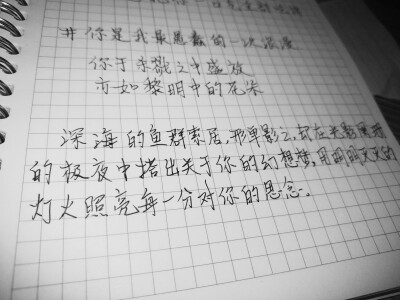 # 你是我最愚蠢的一次浪漫
你于永戬之中盛放
亦如黎明中的花朵
深海的鱼群素居,形单影之,却在无数黑暗
的极夜中搭出关于你的幻想梦,用明明灭灭的
灯火照亮每一分对你的思念。